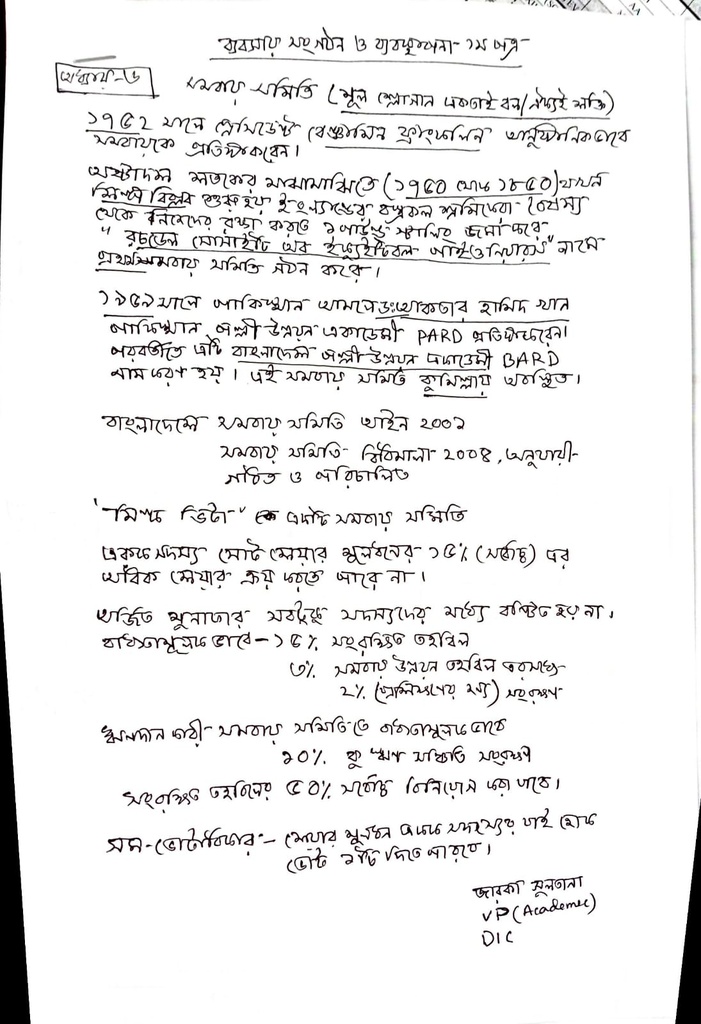 ব্যবসায় সংগঠন ও ব্যবস্থাপনা-১ম পত্র
অধ্যায়-৬
সমবায় সমিতি (মূল শ্লোগান একতাই বল/ঐক্যই শক্তি)
১৭৫২ সালে প্রেসিডেন্ট বেঞ্জামিন ফ্রাংকলিন আনুষ্ঠানিকভাবে
সমবায়কে প্রতিষ্ঠা করেন।
অষ্টাদশ শতকের মাঝামাঝিতে (১৭৫০ থেকে ১৮৫০) যখন
শিল্প বিপ্লব শুরু হয় ইংল্যান্ডের বস্ত্রকল শ্রমিকেরা বৈষম্য
থেকে নিজেদের রক্ষা করতে ১ পাউন্ড স্টার্লিং জমা করে
"রচডেল সোসাইটি অব ইক্যুইটেবল পাইওনিয়ারস" নামে
প্রথম সমবায় সমিতি গঠন করে।
১৯৫৯ সালে পাকিস্থান আমলে ডঃ আখতার হামিদ খান
পাকিস্থান পল্লী উন্নয়ন একাডেমী PARD প্রতিষ্ঠা করেন।
পরবর্তীতে এটি বাংলাদেশ পল্লী উন্নয়ন একাডেমী BARD
নামকরণ হয়। এই সমবায় সমিতি কুমিল্লায় অবস্থিত।
বাংলাদেশে সমবায় সমিতি আইন ২০০১
সমবায় সমিতি বিধিমালা ২০০৪, অনুযায়ী
গঠিত ও পরিচালিত
"মিল্ক ভিটা" একটি সমবায় সমিতি
একজন সদস্য মোট শেয়ার মূলধনের ১৫% (সর্বোচ্চ) এর
অধিক শেয়ার ক্রয় করতে পারে না।
অর্জিত মুনাফার সবটুকু সদস্যদের মধ্যে বণ্টিত হয় না।
বাধ্যতামূলকভাবে - ১৫% সংরক্ষিত তহবিল
৩% সমবায় উন্নয়ন তহবিল
২% (প্রশিক্ষণের জন্য) সংরক্ষণ
ঋণদানকারী সমবায় সমিতিতে বাধ্যতামূলকভাবে
১০% কু ঋণ সঞ্চিতি সংরক্ষণ
সংরক্ষিত তহবিলের ৫০% সর্বোচ্চ বিনিয়োগ করা যাবে।
সম-ভোটাধিকার:- শেয়ার মূলধন একজন সদস্যের যাই হোক
ভোট ১টি দিতে পারবে।
সুলতানা
VP (Academic)
DIC